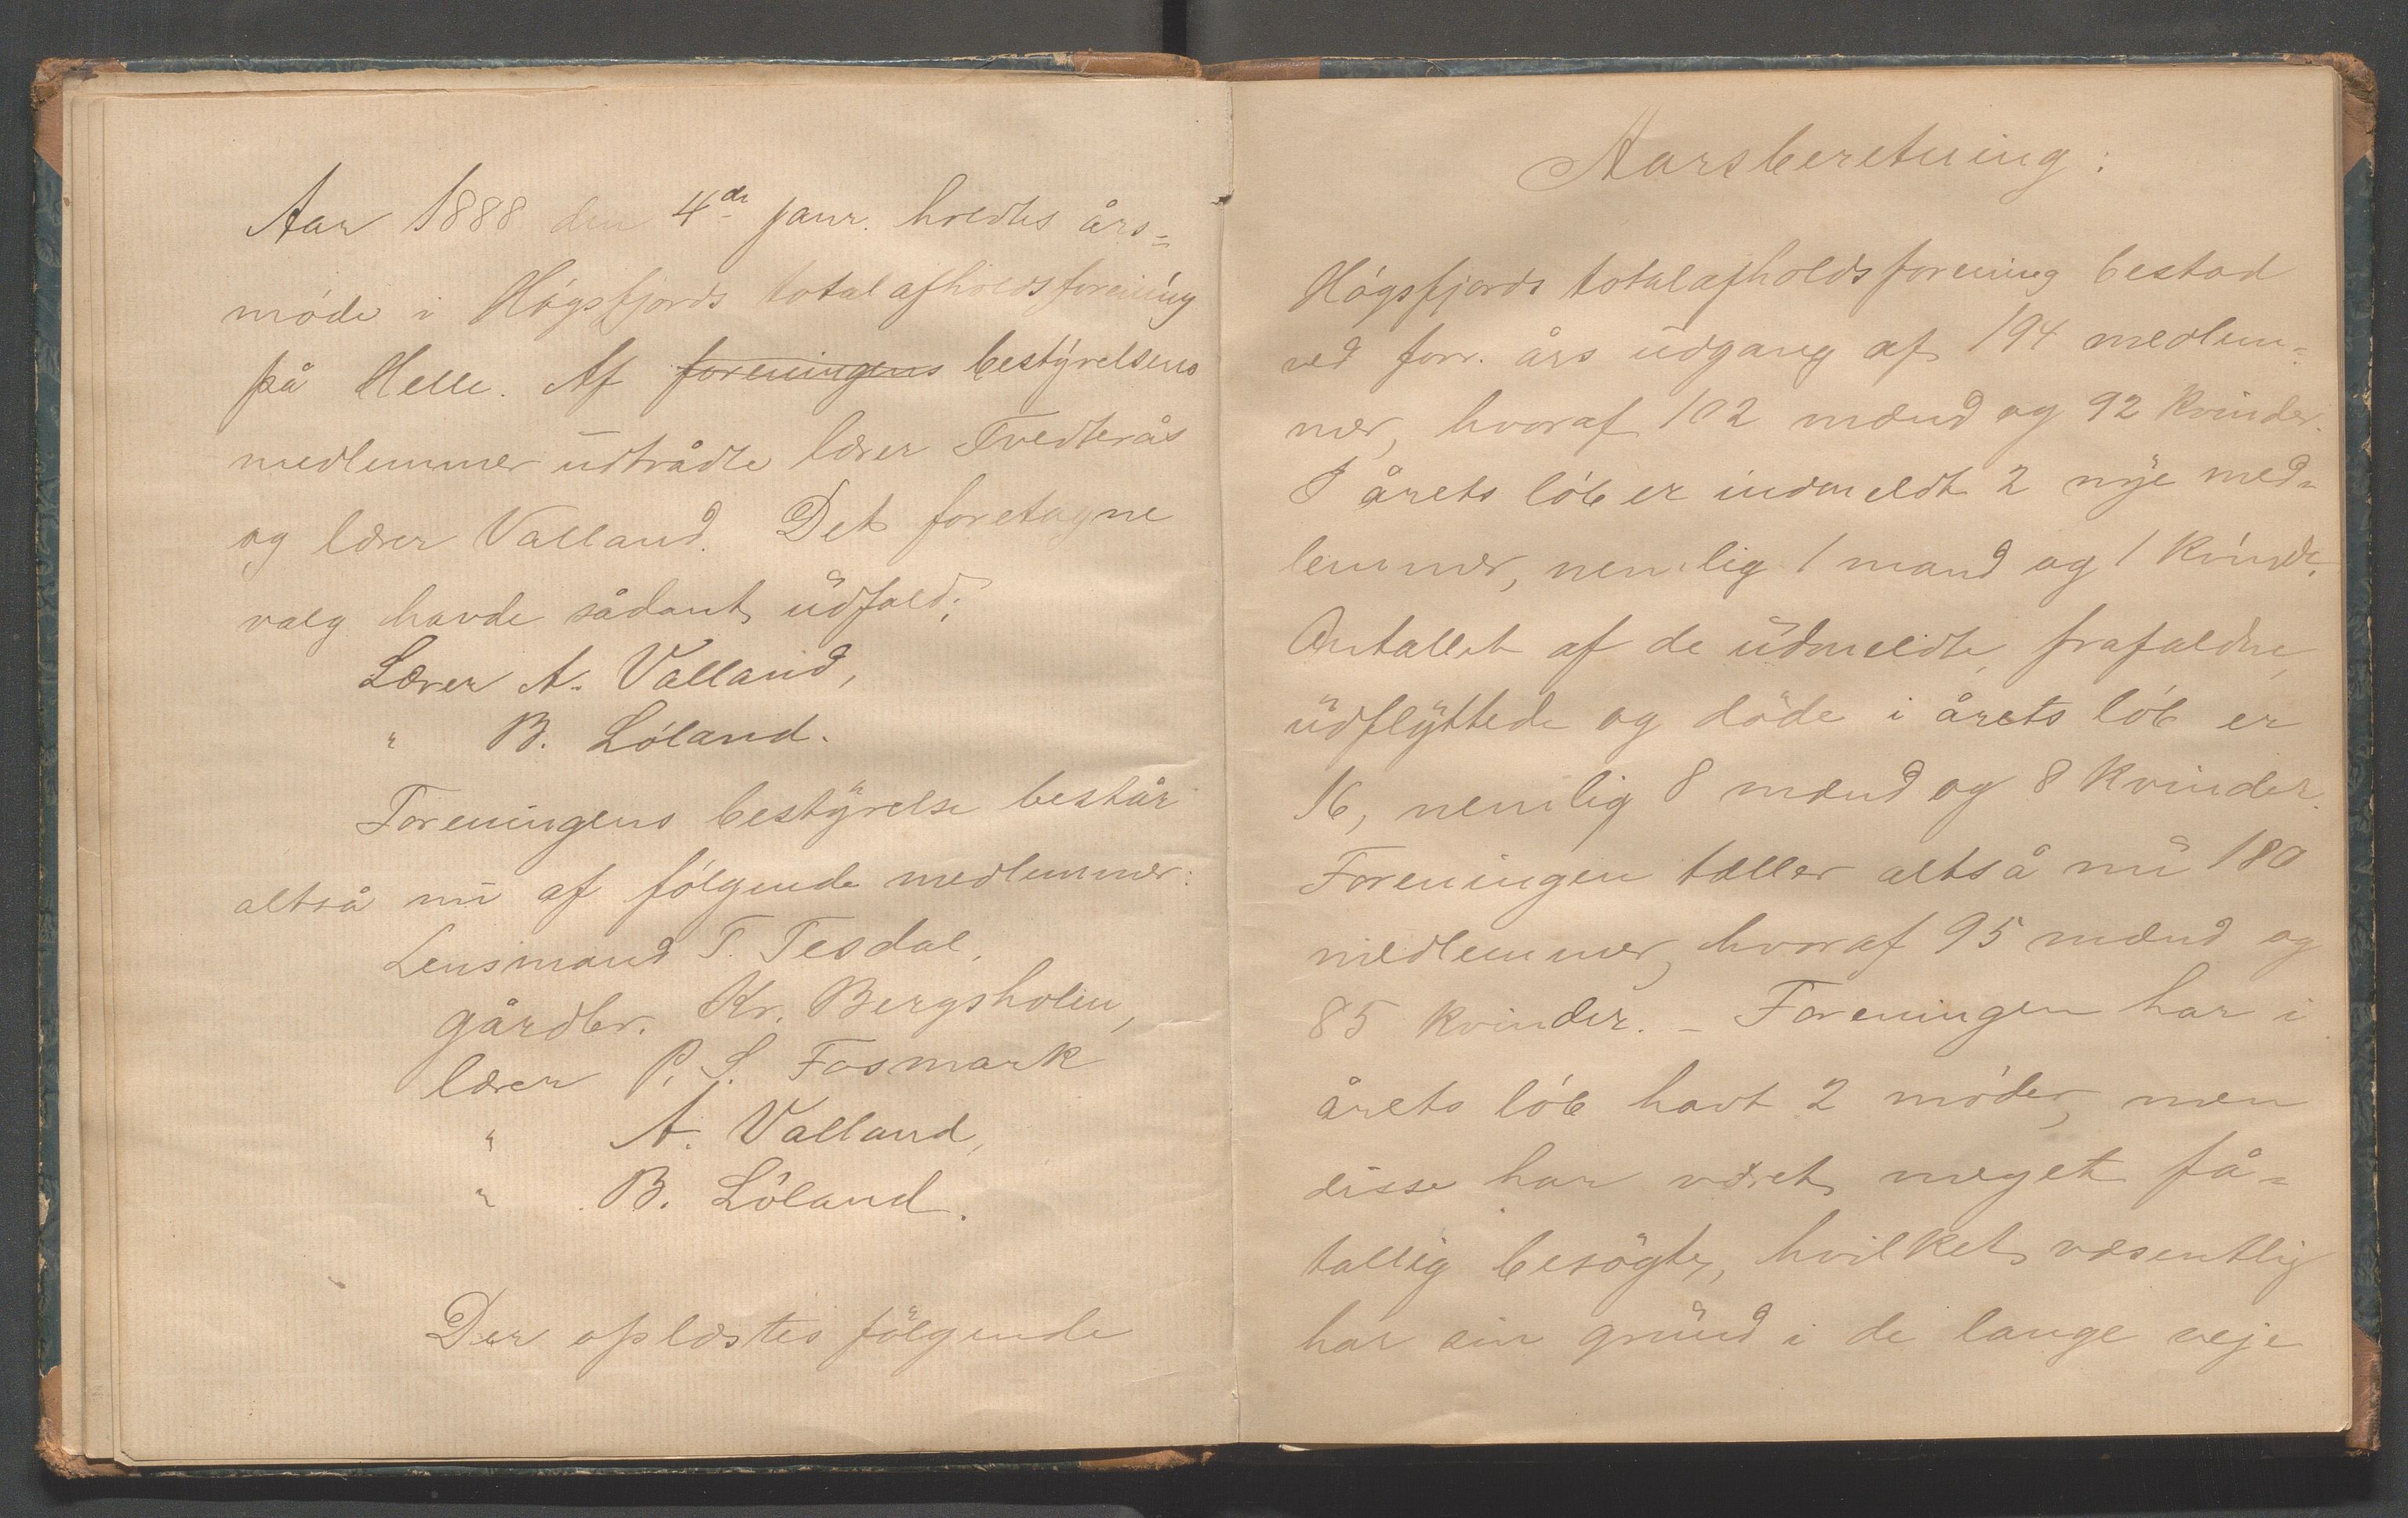 Aar 1888 den 4de janr. holdtes års-
møde i Høgsfjords totalafholdsforening
på Helle. Af foreningens bestyrelsens
medlemmer udtrådte lærer Tvedterås
og lærer Valland. Det foretagne
valg havde sådant udfald:
Lærer A. Valland,
" B. Løland.
Foreningens bestyrelse består
altså nu af følgende medlemmer:
Lensmand T. Tesdal,
gårdbr. Kr. Bergsholm,
lærer P. S. Fosmark
" A. Valland,
" B. Løland.
Der oplæstes følgende
Aarsberetning:
Høgsfjords totalafholdsforening bestod
ved forr. års udgang af 194 medlem-
mer, hvoraf 102 mænd og 92 kvinder.
I årets løb er indmeldt 2 nye med-
lemmer, nemlig 1 mand og 1 kvinde.
Antallet af de udmeldte, frafaldne,
udflyttede og døde i årets løb er
16, nemlig 8 mænd og 8 kvinder.
Foreningen tæller altså nu 180
medlemmer, hvoraf 95 mænd og
85 kvinder. – Foreningen har i
årets løb havt 2 møder, men
disse har været meget få-
tallig besøgte, hvilket væsentlig
har sin grund i de lange veje